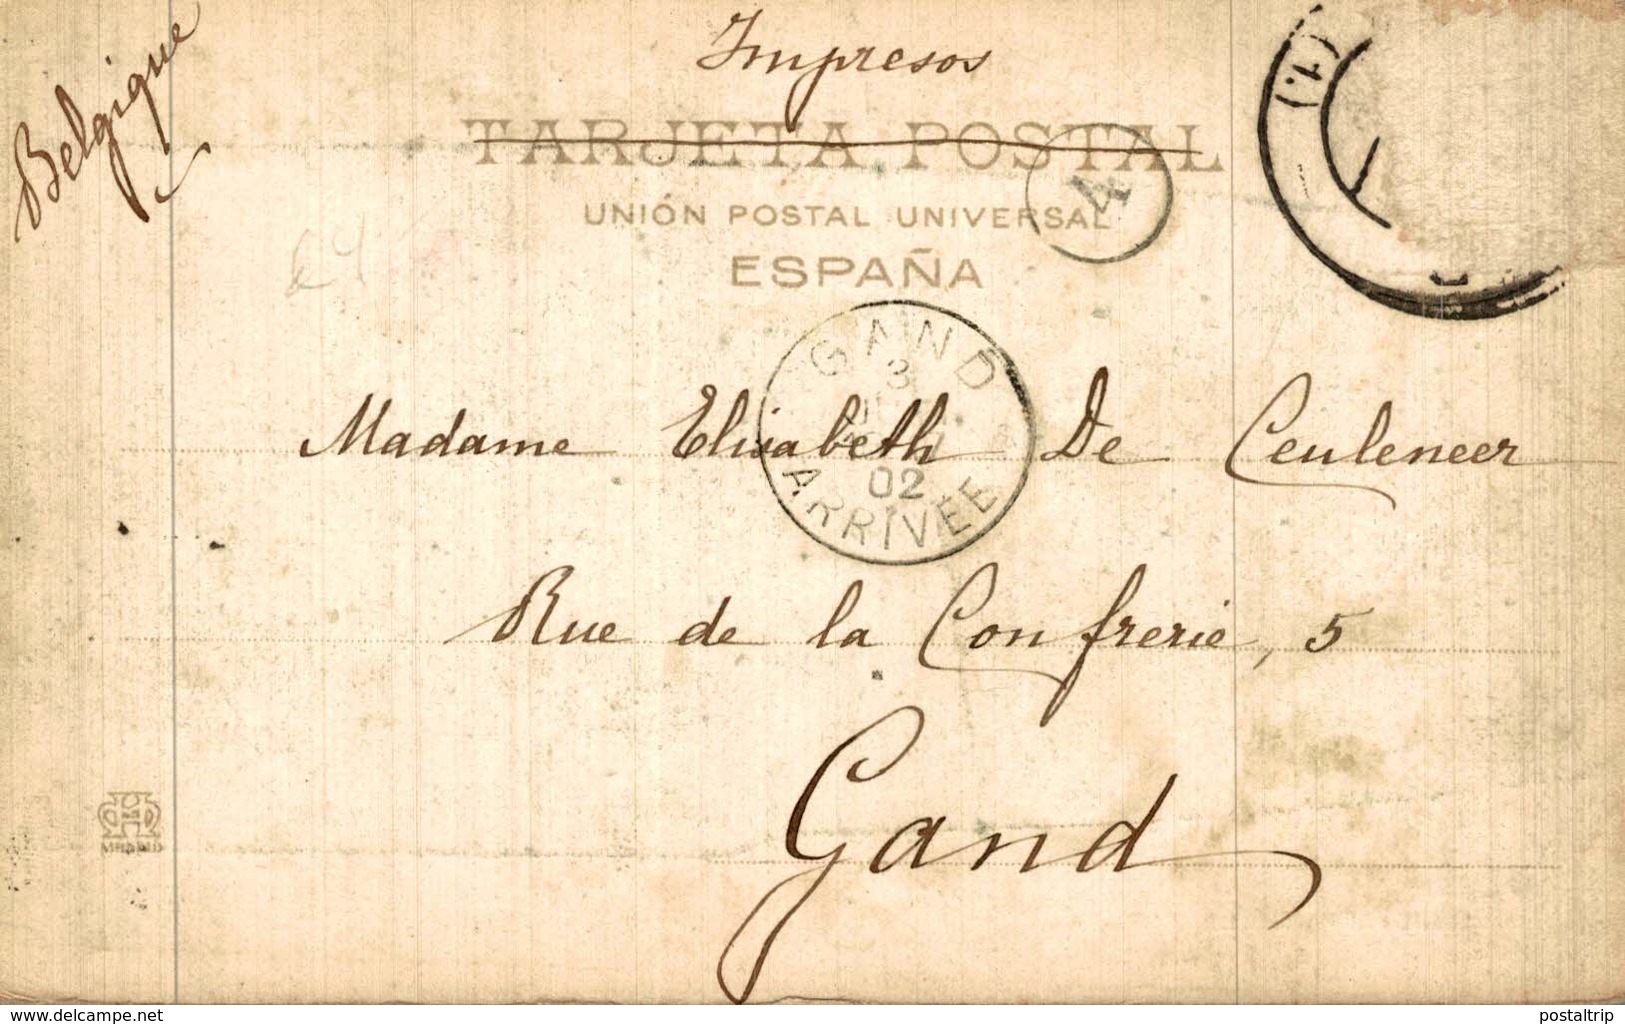 Impresos
Belgique
TARJETA POSTAL
4
(1.)
UNIÓN POSTAL UNIVERSAL
ESPAÑA
£4
GAND
3
02
ARRIVÉE
Madame Elisabeth De Ceuleneer
Rue de la Confrerie, 5
Gand
MADRID
www.delcampe.net
postaltrip